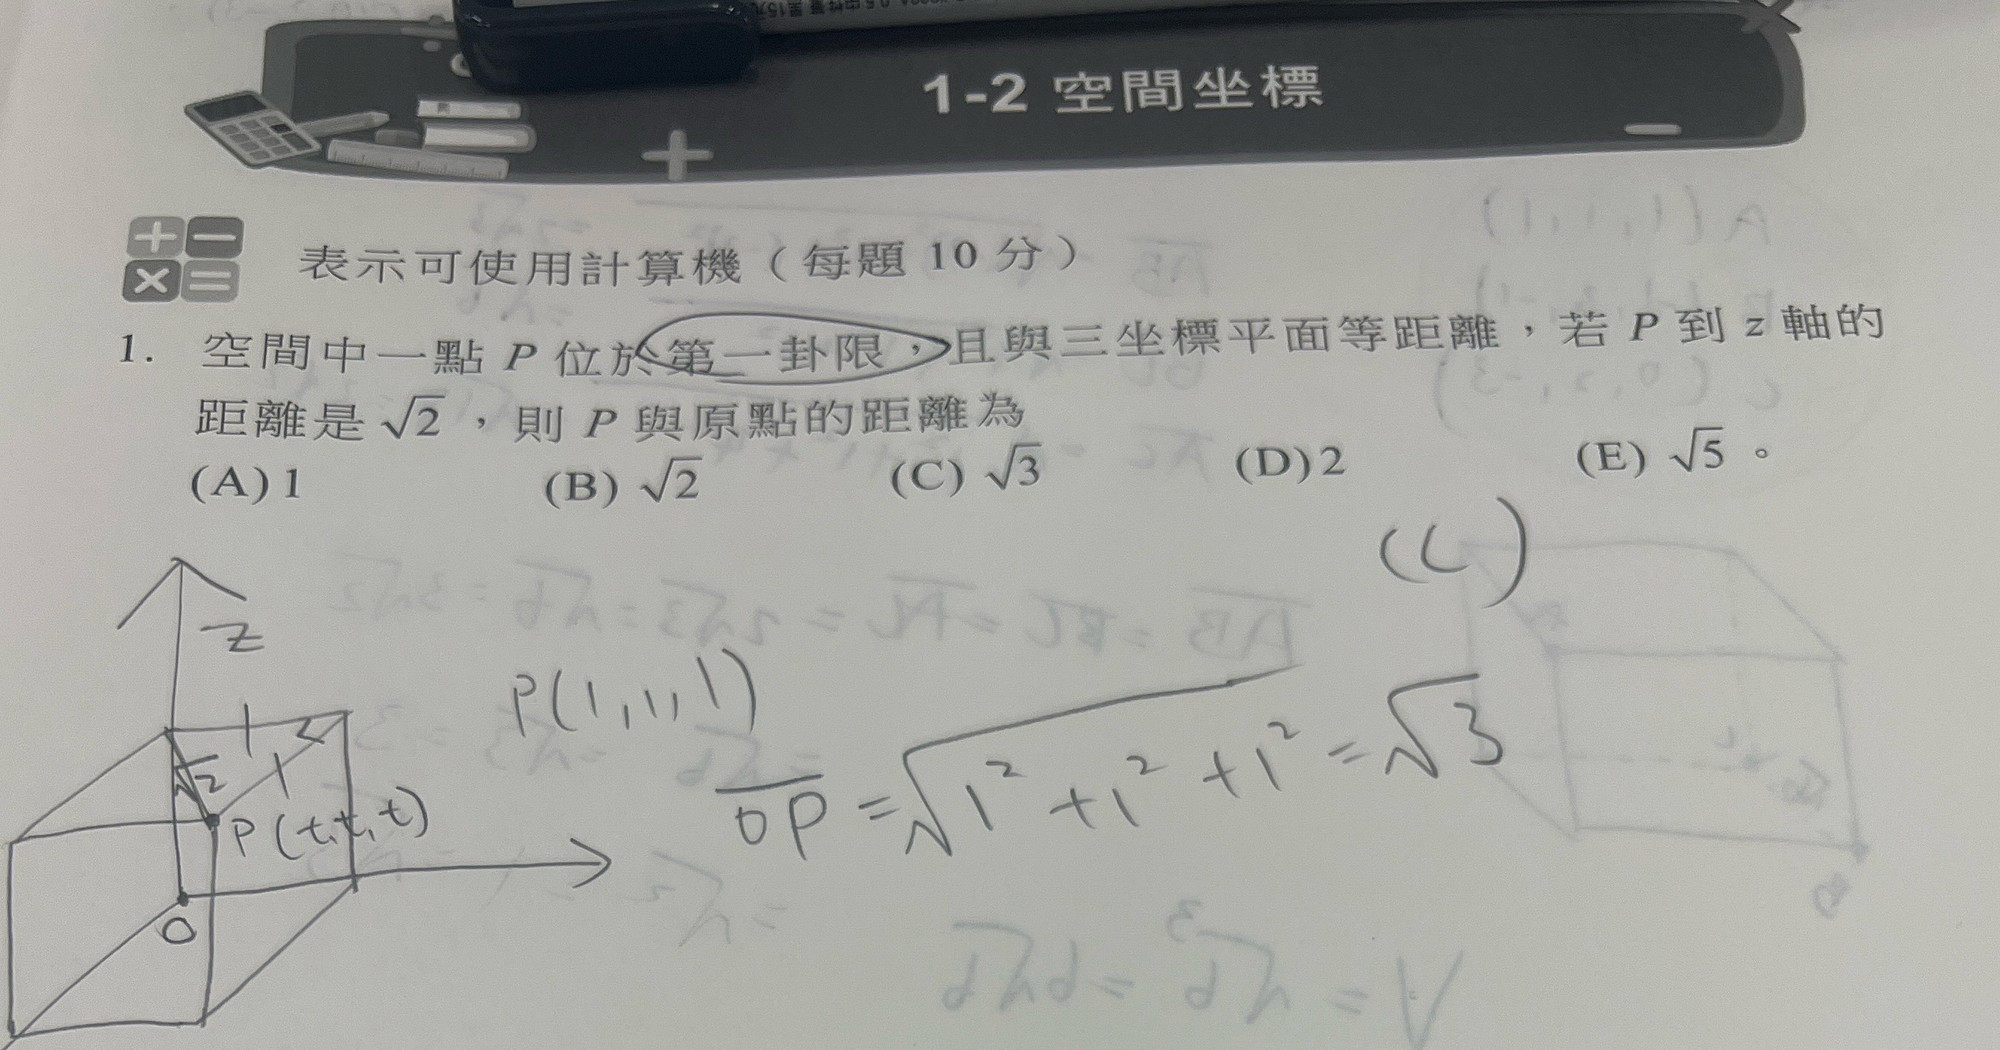 1-2 空間坐標
表示可使用計算機（每題 10 分）
1. 空間中一點 P 位於第一卦限，且與三坐標平面等距離，若 P 到 z 軸的
距離是 √2，則 P 與原點的距離為
(A) 1 (B) √2 (C) √3 (D) 2 (E) √5。
(C)
z
P(1,1,1)
1
√2
1
P(t,t,t)
OP = √1²+1²+1² = √3
O